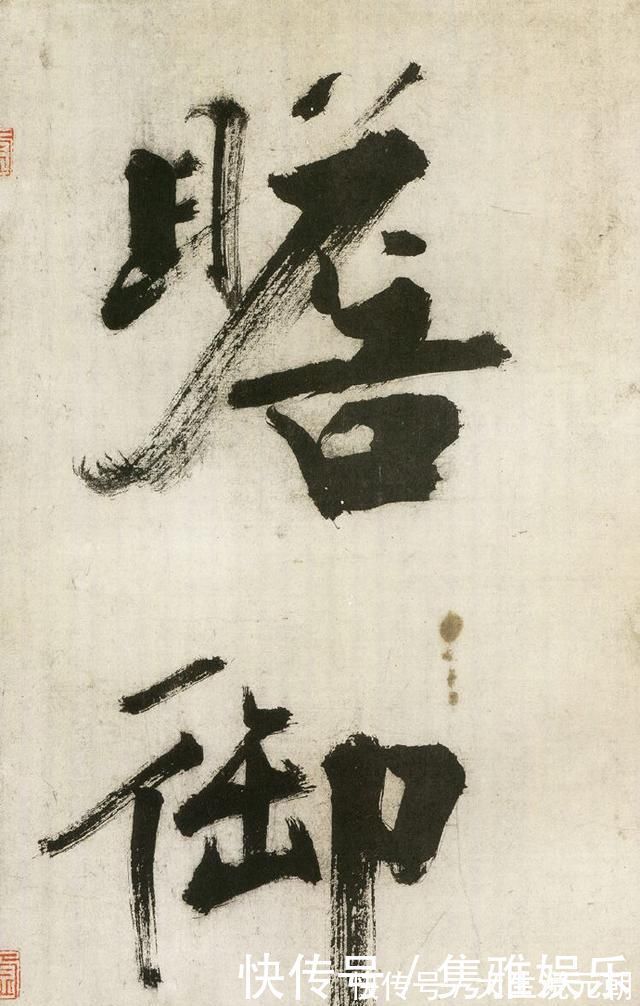 瞻
御
快传号 / 集雅娱乐
快传号